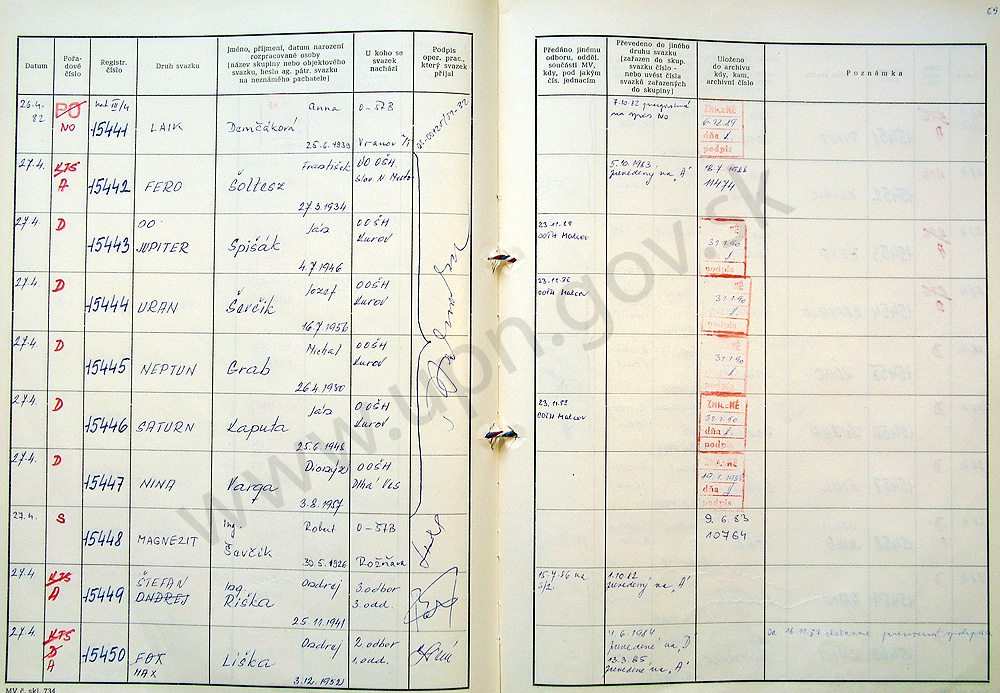 69
Datum
Pořa-
dové
číslo
Registr.
číslo
Druh svazku
Jméno, příjmení, datum narození
rozpracované osoby
[název skupiny nebo objektového
svazku, heslo ag. pátr. svazku
na neznámého pachatele]
U koho se
svazek
nachází
Podpis
oper. prac.,
který svazek
přijal
Předáno jinému
odboru, odděl.
součásti MV,
kdy, pod jakým
čís. jednacím
Převedeno do jiného
druhu svazku
[zařazen do skup.
svazku číslo -
nebo uvést čísla
svazků zařazených
do skupiny]
Uloženo
do archivu
kdy, kam,
archivní číslo
Poznámka
26.4.
82
PO
NO
15441
LAIK
Anna
Demčáková
25.6.1939
O-ŠTB
Vranov
7.10.82
na spis NO
ZNIČENÉ
6.12.89
dňa
podpis
27.4.
KTS
A
15442
FERO
František
Šoltesz
27.3.1934
OO ŠH
Slov. N. Mesto
5.10.1983
prevedený na "A"
18.7.1988
11474
27.4.
D
15443
OO
JUPITER
Ján
Spišák
4.7.1946
OOŠH
Kurov
23.11.88
OOŠH Malcov
31.1.90
podpis
27.4.
D
15444
URAN
Jozef
Ševčik
16.7.1956
OOŠH
Kurov
OOŠH Malcov
31.1.90
27.4.
D
15445
NEPTUN
Michal
Grab
26.4.1930
OOŠH
Kurov
31.1.90
podpis
27.4.
D
15446
SATURN
Ján
Kaputa
25.6.1946
OOŠH
Kurov
23.11.88
OOŠH Malcov
ZNIČENÉ
31.1.90
dňa
podpis
27.4.
D
15447
NINA
Dionýz
Varga
3.8.1957
OOŠH
Dlhá Ves
ZNIČENÉ
dňa
podpis
27.4.
S
15448
MAGNEZIT
Ing. Robert
Ševčik
30.5.1926
O-ŠTB
Rožňava
9.6.83
10764
27.4.
KTS
A
15449
ŠTEFAN
ONDREJ
Ing. Ondrej
Riška
25.11.1941
3.odbor
3.odd.
15.7.86 na
1.10.82
prevedený na "A"
27.4.
KTS
D
A
15450
FOX
MAX
Ondrej
Liška
3.12.1952
2.odbor
1.odd.
4.6.1984
prevedené na "D"
13.3.85
prevedené na "A"
MV č. skl. 734
www.upn.gov.sk